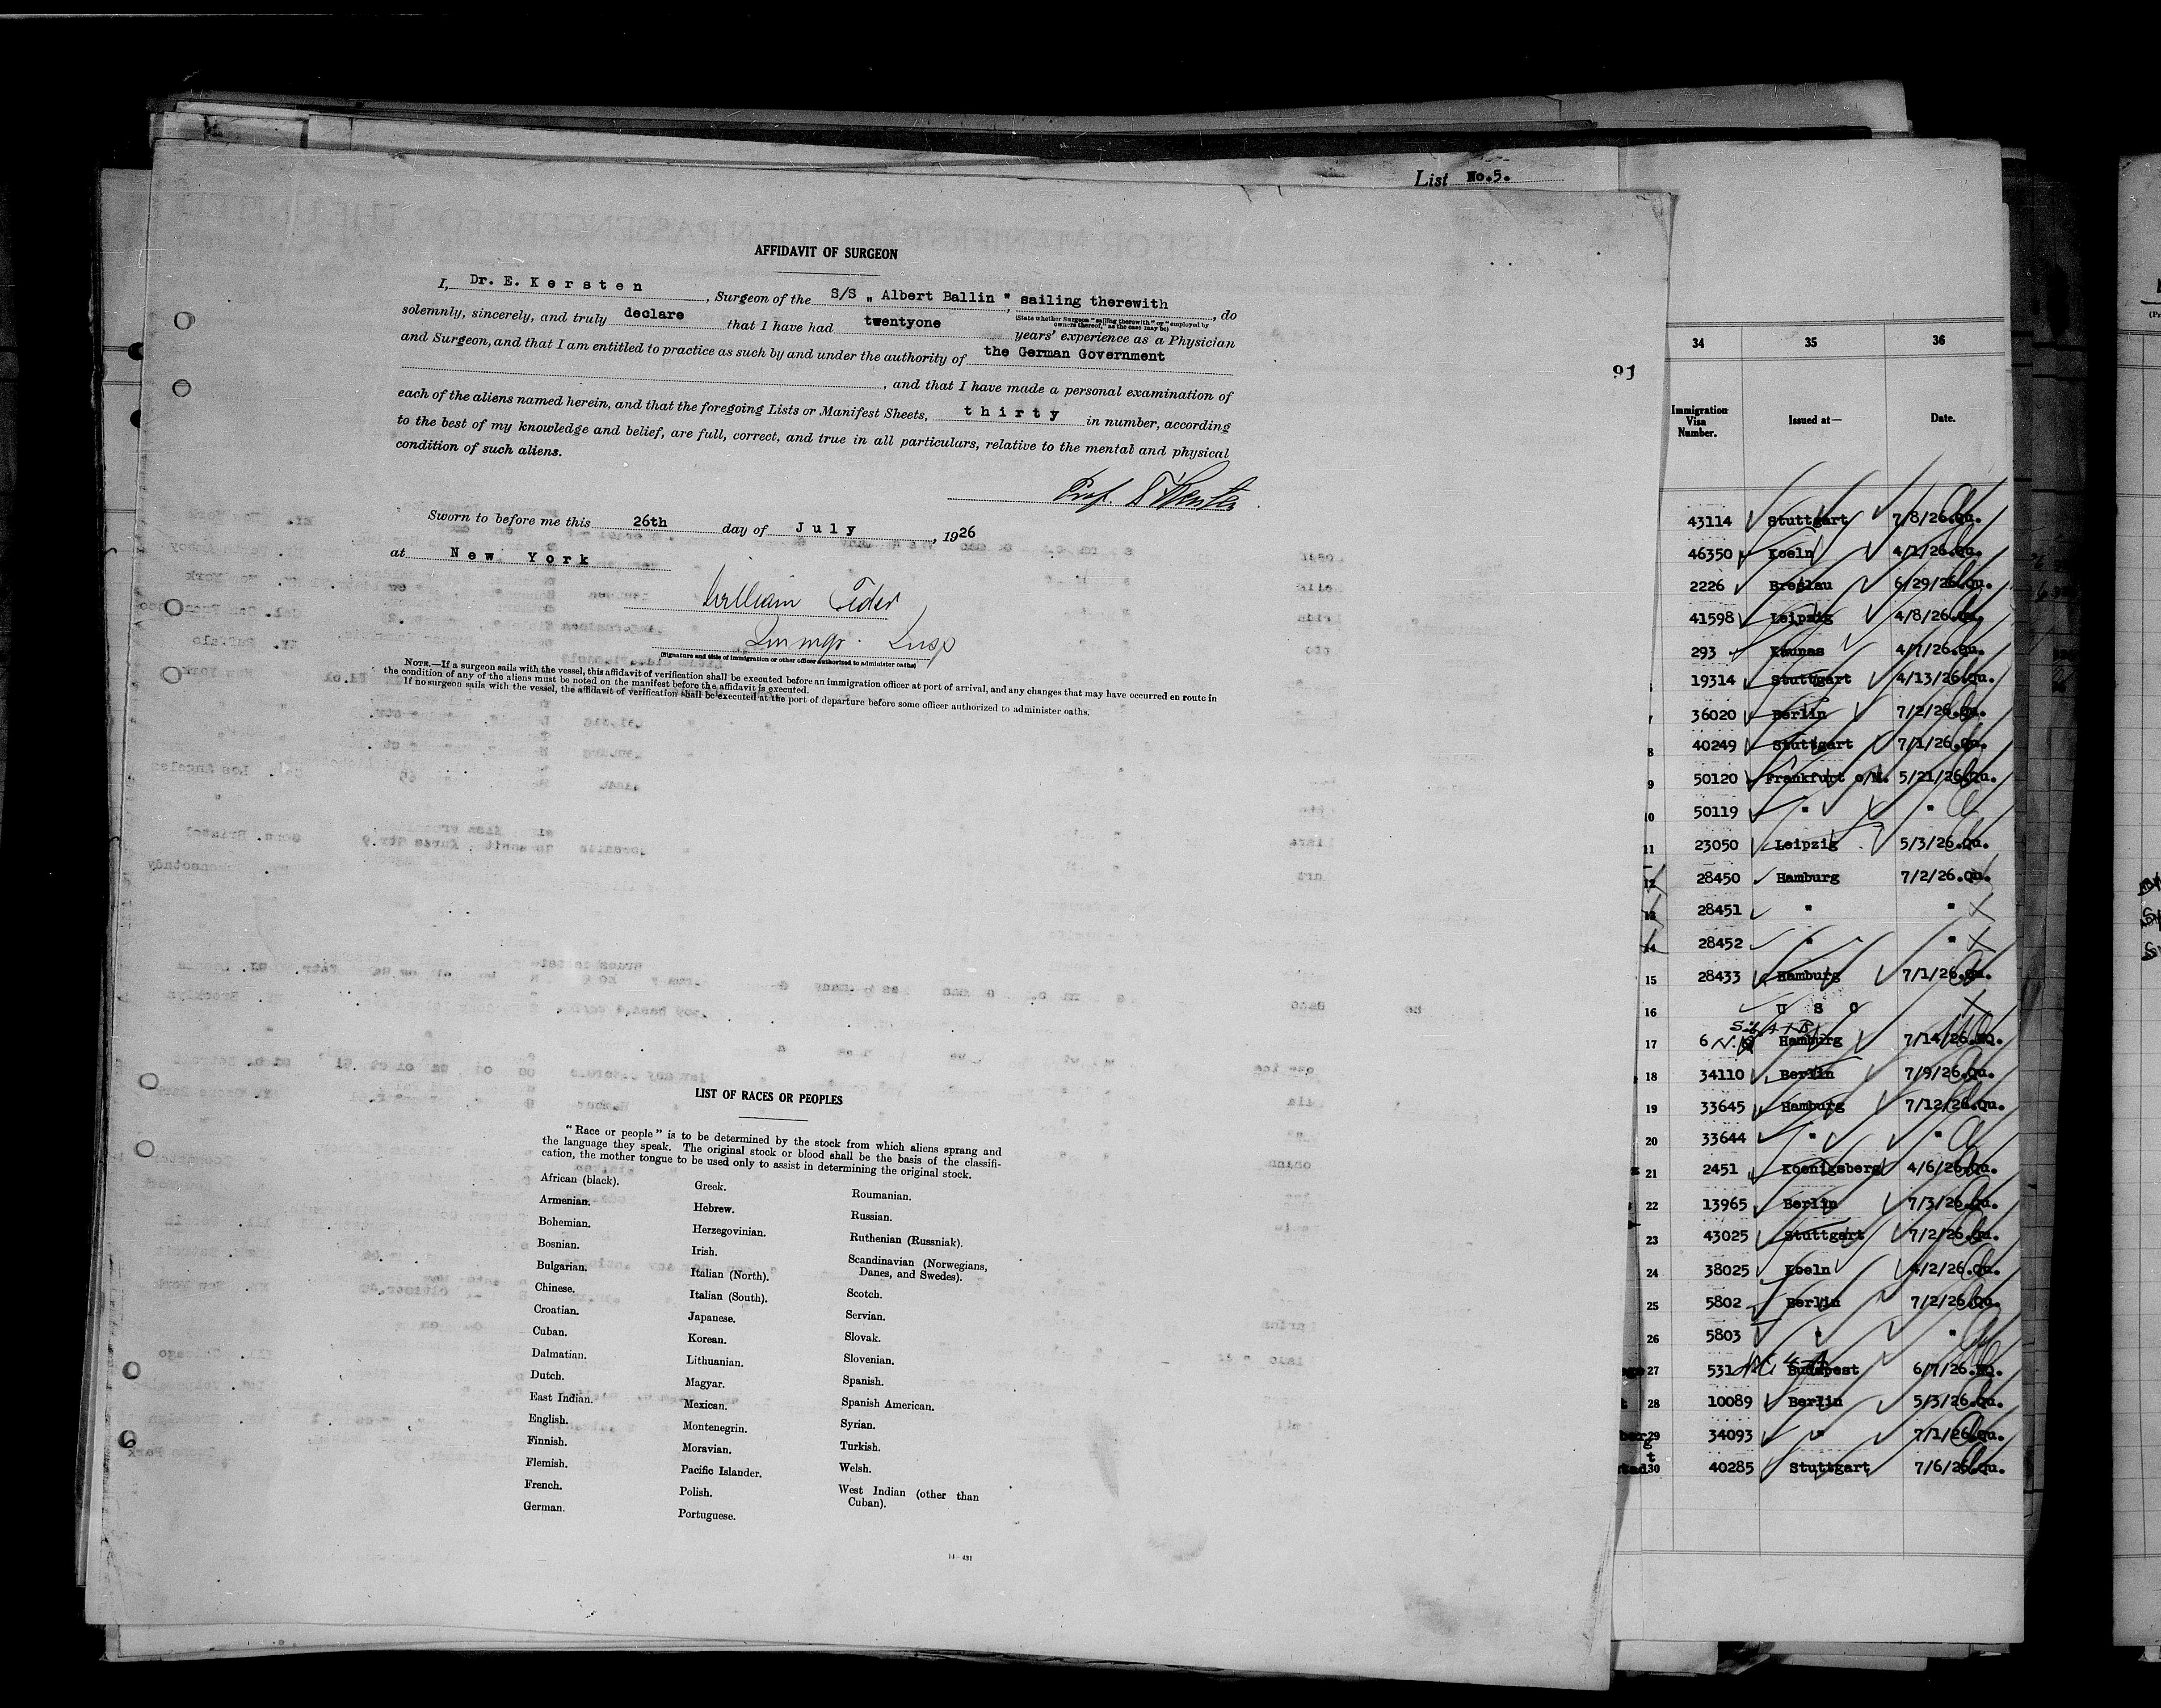 List No.5.
AFFIDAVIT OF SURGEON
I, Dr. E. Kersten, Surgeon of the S/S „ Albert Ballin " sailing therewith, do
(State whether Surgeon "sailing therewith" or "employed by
owners thereof," as the case may be)
solemnly, sincerely, and truly declare that I have had twentyone years' experience as a Physician
and Surgeon, and that I am entitled to practice as such by and under the authority of the German Government
, and that I have made a personal examination of
each of the aliens named herein, and that the foregoing Lists or Manifest Sheets, thirty in number, according
to the best of my knowledge and belief, are full, correct, and true in all particulars, relative to the mental and physical
condition of such aliens.
Prof.
Sworn to before me this 26th day of July, 1926
at New York
William
Insp
(Signature and title of immigration or other officer authorized to administer oaths)
NOTE.—If a surgeon sails with the vessel, this affidavit of verification shall be executed before an immigration officer at port of arrival, and any changes that may have occurred en route in
the condition of any of the aliens must be noted on the manifest before the affidavit is executed.
If no surgeon sails with the vessel, the affidavit of verification shall be executed at the port of departure before some officer authorized to administer oaths.
LIST OF RACES OR PEOPLES
"Race or people" is to be determined by the stock from which aliens sprang and
the language they speak. The original stock or blood shall be the basis of the classifi-
cation, the mother tongue to be used only to assist in determining the original stock.
African (black).
Armenian.
Bohemian.
Bosnian.
Bulgarian.
Chinese.
Croatian.
Cuban.
Dalmatian.
Dutch.
East Indian.
English.
Finnish.
Flemish.
French.
German.
Greek.
Hebrew.
Herzegovinian.
Irish.
Italian (North).
Italian (South).
Japanese.
Korean.
Lithuanian.
Magyar.
Mexican.
Montenegrin.
Moravian.
Pacific Islander.
Polish.
Portuguese.
Roumanian.
Russian.
Ruthenian (Russniak).
Scandinavian (Norwegians,
Danes, and Swedes).
Scotch.
Servian.
Slovak.
Slovenian.
Spanish.
Spanish American.
Syrian.
Turkish.
Welsh.
West Indian (other than
Cuban).
14—431
91
34 35 36
Immigration
Visa
Number.
Issued at—
Date.
43114 Stuttgart 7/8/26.Qu.
46350 Koeln 4/1/26.Qu.
2226 Breslau 6/29/26.Qu.
41598 Leipzig 4/8/26.Qu.
293 Kaunas 4/7/26.Qu.
19314 Stuttgart 4/13/26.Qu.
7 36020 Berlin 7/2/26.Qu.
8 40249 Stuttgart 7/1/26.Qu.
9 50120 Frankfurt o/M. 5/21/26.Qu.
10 50119 " "
11 23050 Leipzig 5/3/26.Qu.
12 28450 Hamburg 7/2/26.Qu.
13 28451 " "
14 28452 " "
15 28433 Hamburg 7/1/26.Qu.
16 U S C
17 6 Hamburg 7/14/26.NQ.
18 34110 Berlin 7/9/26.Qu.
19 33645 Hamburg 7/12/26.Qu.
20 33644 " "
21 2451 Koenigsberg 4/6/26.Qu.
22 13965 Berlin 7/3/26.Qu.
23 43025 Stuttgart 7/2/26.Qu.
24 38025 Koeln 4/2/26.Qu.
25 5802 Berlin 7/2/26.Qu.
26 5803 " "
27 531 Budapest 6/7/26.NQ.
28 10089 Berlin 5/3/26.Qu.
29 34093 " 7/1/26.Qu.
30 40285 Stuttgart 7/6/26.Qu.